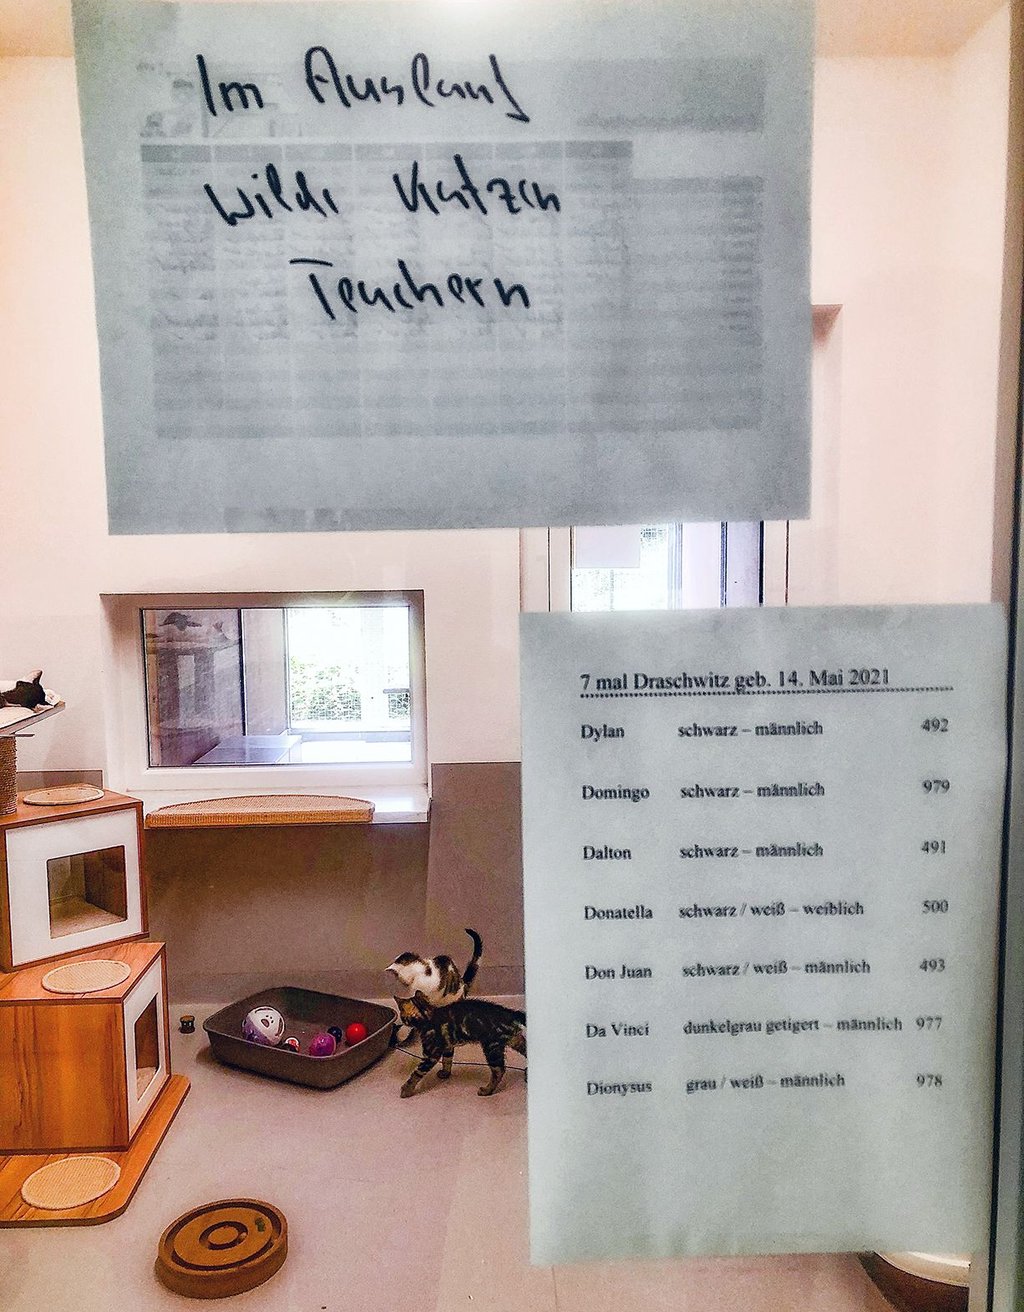 Im Auslauf
Wilde Katzen
Teuchern
7 mal Draschwitz geb. 14. Mai 2021
Dylan schwarz – männlich 492
Domingo schwarz – männlich 979
Dalton schwarz – männlich 491
Donatella schwarz / weiß – weiblich 500
Don Juan schwarz / weiß – männlich 493
Da Vinci dunkelgrau getigert – männlich 977
Dionysus grau / weiß – männlich 978